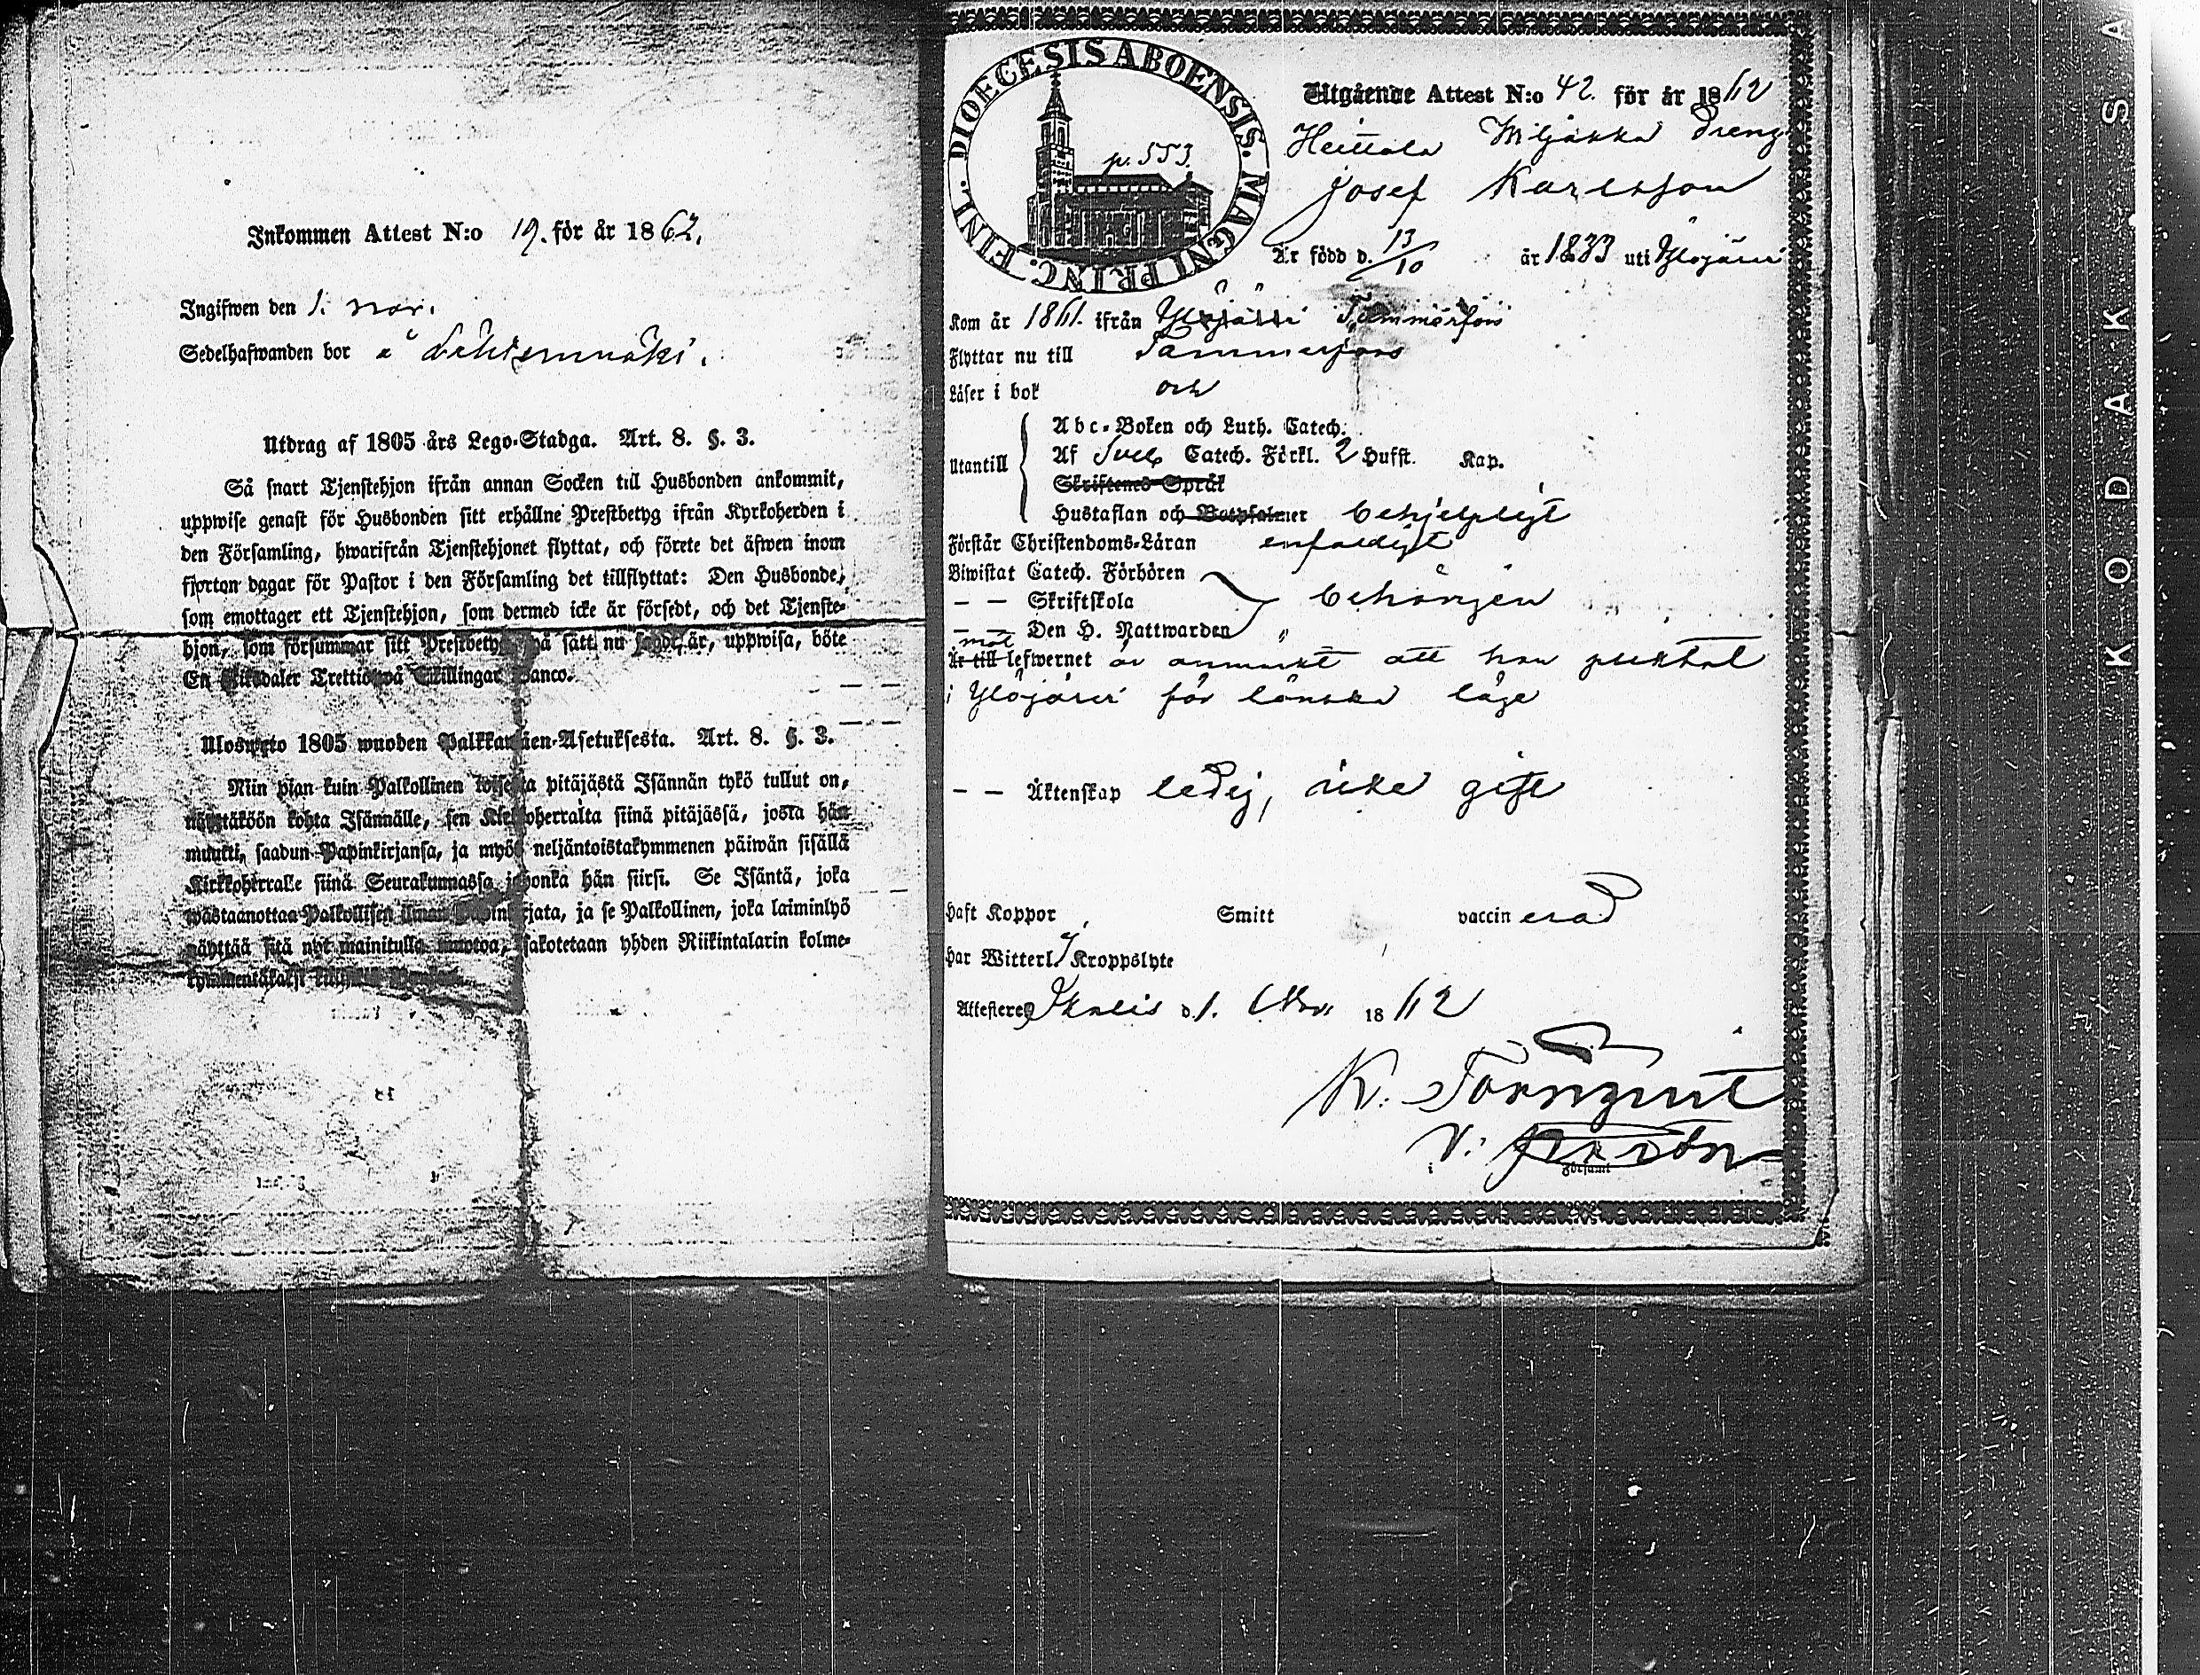 Inkommen Attest N:o 19. för år 1862.
Ingifwen den 1. nov.
Sedelhafwanden bor å
Utdrag af 1805 års Lego-Stadga. Art. 8. §. 3.
Så snart Tjenstehjon ifrån annan Socken till Husbonden ankommit,
uppwise genast för Husbonden sitt erhållne Prestbetyg ifrån Kyrkoherden i
den Församling, hwarifrån Tjenstehjonet flyttat, och förete det äfwen inom
fjorton dagar för Pastor i den Församling det tillflyttat: Den Husbonde,
som emottager ett Tjenstehjon, som dermed icke är försedt, och det Tjenste-
hjon, som försummar sitt Prestbetyg på sätt nu sagdt är, uppwisa, böte
En Riksdaler Trettiotwå Skillingar Banco.
Ulosweto 1805 wuoden Palkkawäen-Asetuksesta. Art. 8. §. 3.
Niin pian kuin Palkollinen toisesta pitäjästä Isännän tykö tullut on,
näyttäköön kohta Isännälle, sen Kirkkoherralta siinä pitäjässä, josta hän
muutti, saadun Papinkirjansa, ja myös neljäntoistakymmenen päiwän sisällä
Kirkkoherralle siinä Seurakunnassa johonka hän siirsi. Se Isäntä, joka
wastaanottaa Palkollisen ilman Papinkirjata, ja se Palkollinen, joka laiminlyö
näyttää sitä nyt mainitulla muotoa, sakotetaan yhden Riikintalarin kolme-
kymmentäkaksi
DIOECESIS ABOENSIS. MAGNI PRINC. FINL.
p. 553.
Utgående Attest N:o 42. för år 1862
Heittola Miljakka Dreng
Josef Karlsson
Är född d. 13/10 år 1833 uti Ylöjärvi
Kom år 1861. ifrån Ylöjärvi Tammerfors
Flyttar nu till Tammerfors
Läser i bok och
Utantill
Abc-Boken och Luth. Catech.
Af Sveb Catech. Förkl. 2 Hufst. Kap.
Skriftenes Språk
Hustaflan och Botpsalmer behjelpligt
Förstår Christendoms-Läran enfaldigt
Biwistat Catech. Förhören
— — Skriftskola behörigen
— — Den H. Nattwarden "
mot
Är till lefwernet är anmärkt att han pliktat
i Ylöjärvi för lönska läge
— — Äktenskap ledig, icke gift
Haft Koppor Smitt vaccin erad
Har Witterl. Kroppslyte
Attesteres Ikalis d. 1. Nov. 1862
K. Törnqvist
V. Pastor
i Församl
KODAK SA